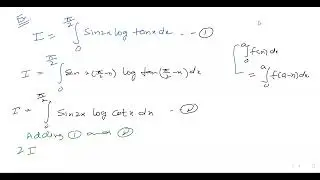 Ex:
I = ∫₀^{π/2} sin2x log tanx dx - - ①
∫₀^a f(x) dx
= ∫₀^a f(a-x) dx
I = ∫₀^{π/2} Sin 2(π/2 - x) log tan(π/2 - x) dx
I = ∫₀^{π/2} sin2x log cotx dx - ②
Adding ① and ②
2I